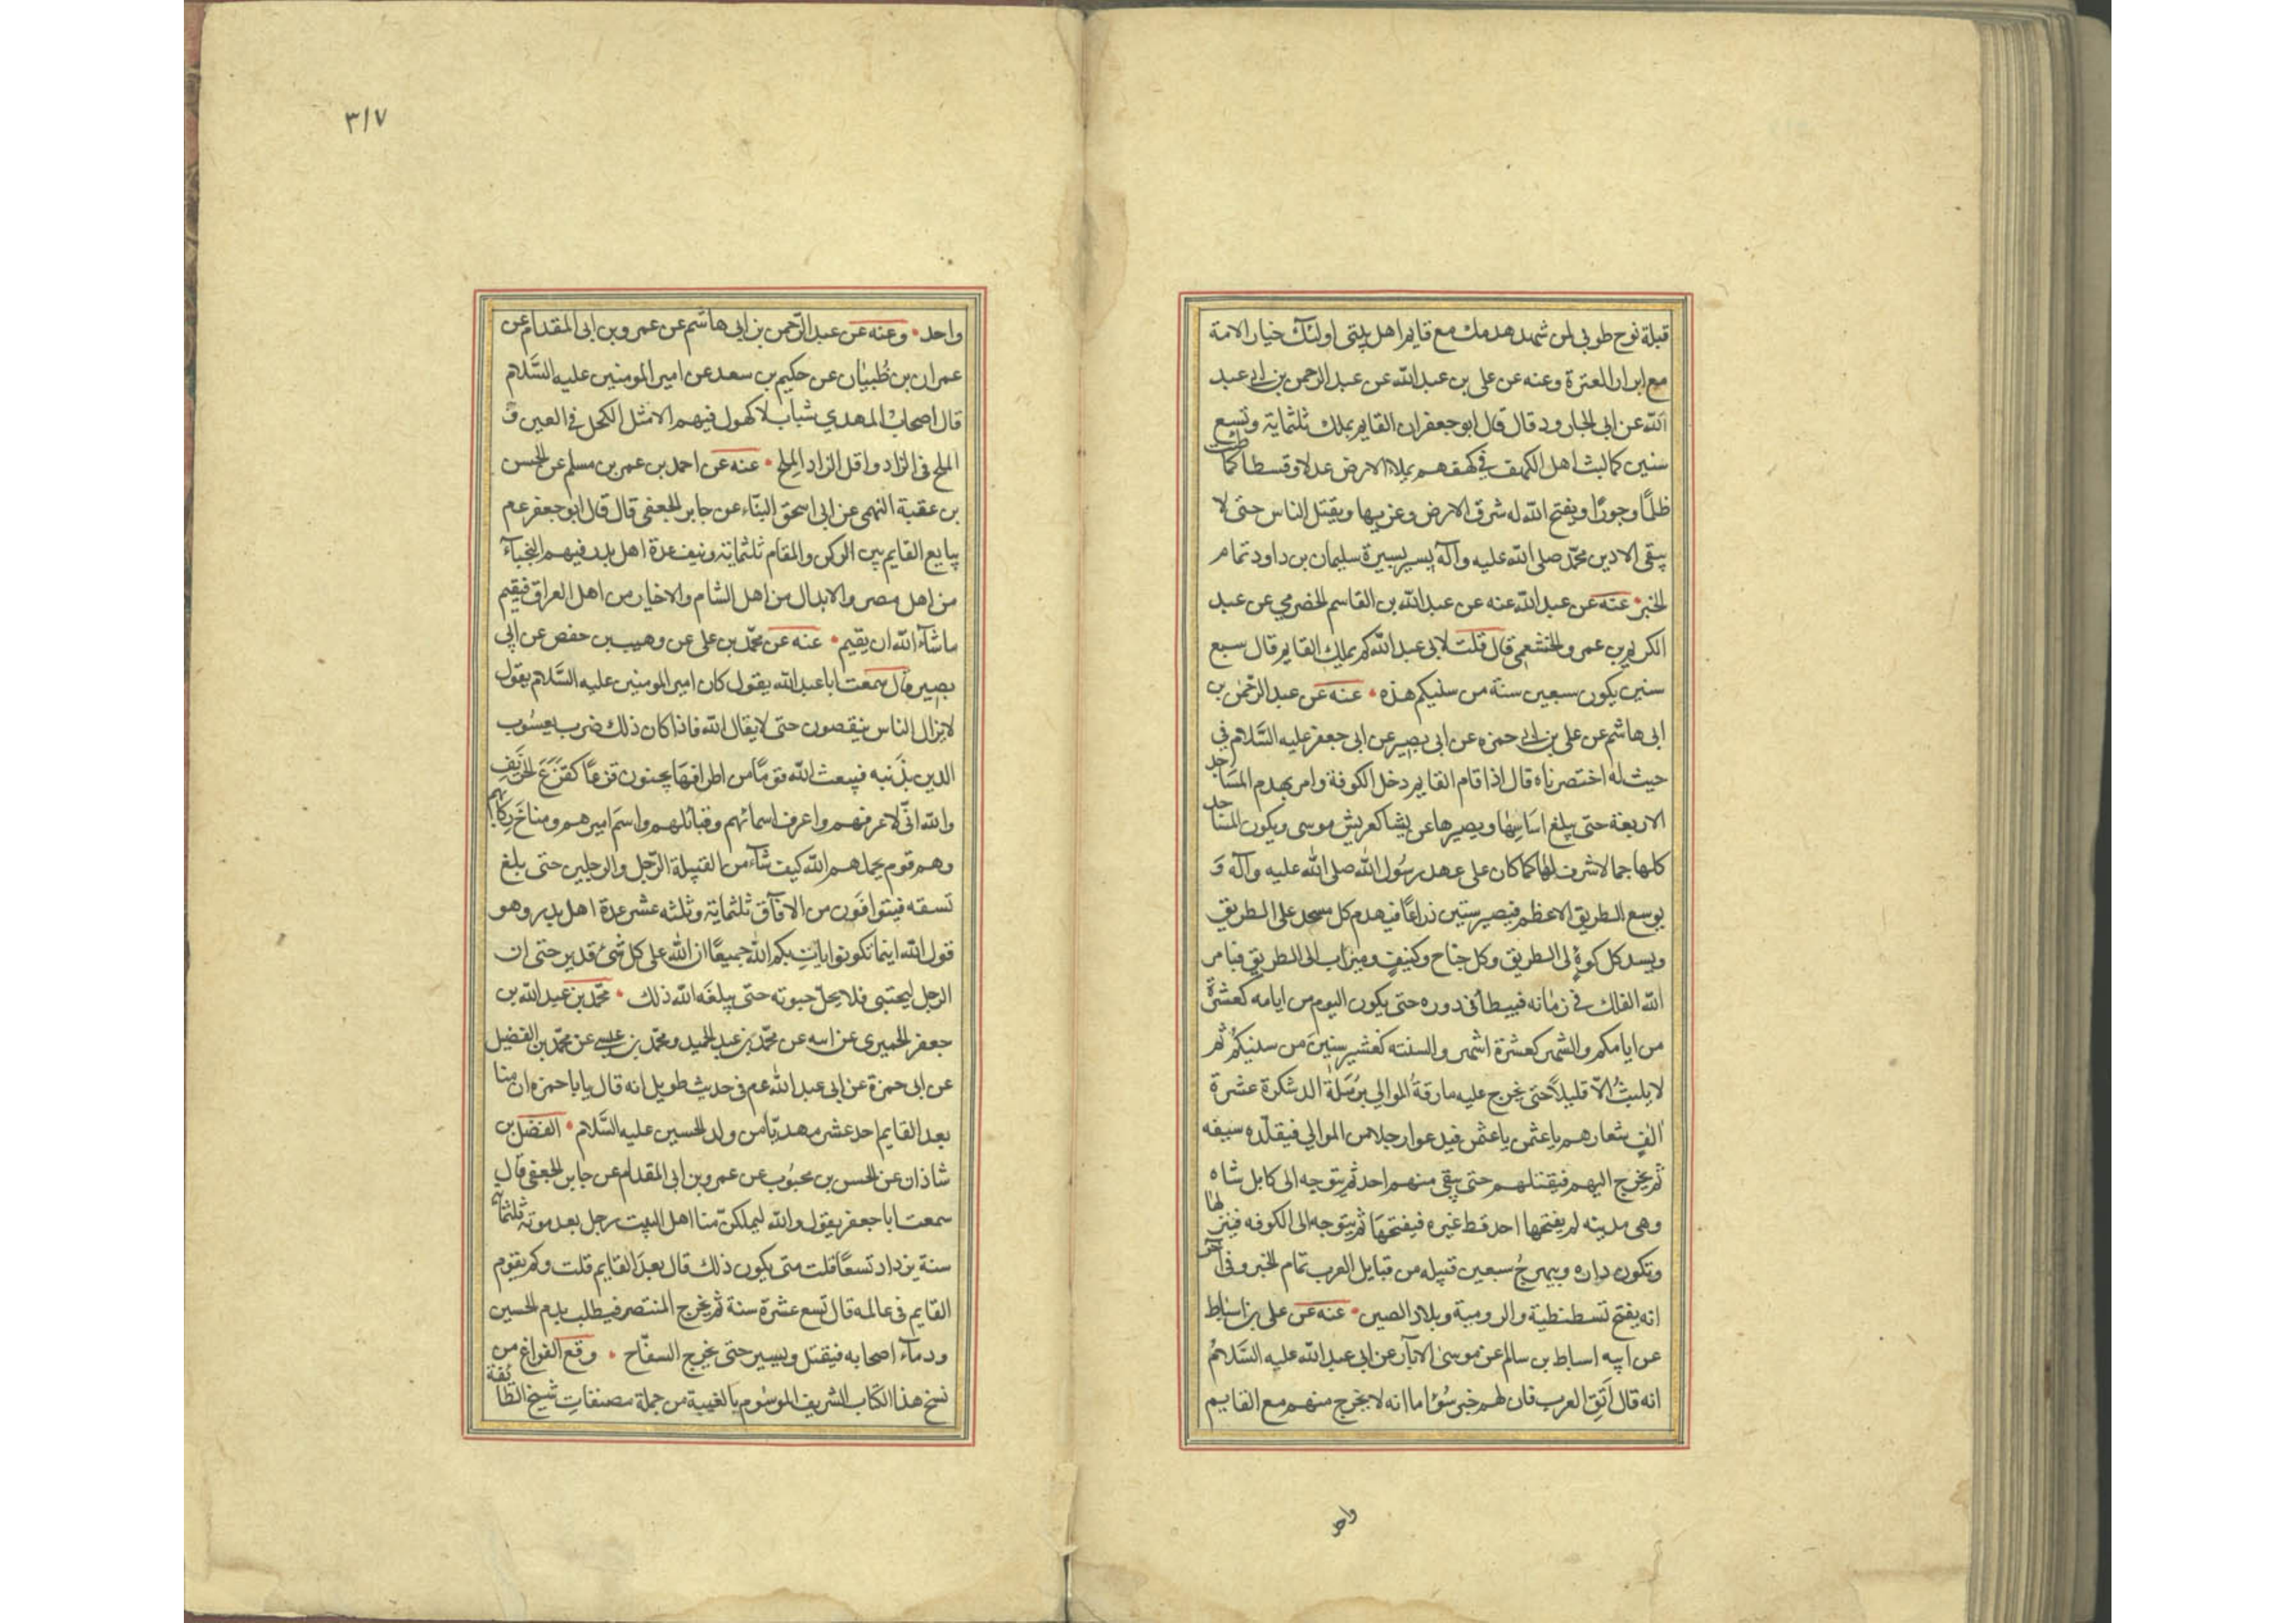 قبلة نوح طوبى لمن شهد هدمك مع قايم اهل بيتى اولئك خيار الامة
مع ابرار العترة وعنه عن على بن عبد الله عن عبد الرحمن بن ابى عبد
الله عن ابى الجارود قال قال ابو جعفر ان القايم يملك ثلثماية وتسع
سنين كما لبث اهل الكهف فى كهفهم يملاا الارض عدلا وقسطا كما ملئت
ظلمًا وجورًا ويفتح الله له شرق الارض وغربها ويقتل الناس حتى لا
يبقى الا دين محمّد صلى الله عليه وآله يسير بسيرة سليمان بن داود تمام
الخبر • عنه عن عبد الله عنه عن عبد الله بن القاسم الحضرمي عن عبد
الكريم بن عمرو الخشعمي قال قلت لابى عبد الله كم يملك القايم قال سبع
سنين يكون سبعين سنة من سنيكم هذه • عنه عن عبد الرّحمن بن
ابى هاشم عن على بن ابى حمزه عن ابى بصير عن ابى جعفر عليه السَّلام في
حيث له اختصرناه قال اذا قام القايم دخل الكوفة وامر بهدم المساجد
الاربعة حتى يبلغ اساسها ويصيرها عريشا كعريش موسى ويكون المساجد
كلها جما لا شرف لها كما كان على عهد رسُول الله صلى الله عليه وآله وَ
يوسع الطريق الاعظم فيصير ستين ذراعًا فيهدم كل مسجد على الطريق
ويسد كل كوةٍ الى الطريق وكل جناح وكنيفٍ وميزاب الى الطريق فيامر
الله الفلك فى زمانه فيبطأ فى دوره حتى يكون اليوم من ايامه كعشرةٍ
من ايامكم والشهر كعشرة اشهر والسنته كعشير سنينَ من سنيكم ثم
لا يلبثُ الّا قليلًا حتى يخرج عليه مارقةُ الموالي برميلة الدشكرة عشرة
الفٍ شعارهم يا عثمن يا عثمن فيدعوا رجلا من الموالي فيقلّده سيفه
ثم يخرج اليهم فيقتلهم حتى يبقى منهم احد ثم يتوجه الى كابل شاه
وهى مدينه لم يفتحها احد قط غيره فيفتحهَا ثم يتوجه الى الكوفه فينزلها
وتكون داره ويبهرجُ سبعين قبيله من قبايل العرب تمام الخبر وفى آخر
انه يفتح تسطنطية والرومية وبلاد الصين • عنه عن على بن اسباط
عن ابيه اسباط بن سالم عن موسىٰ الابّار عن ابى عبد الله عليه السَّلامُ
انه قال اتّقِ العرب فان لهم خبر سُوٓء اما انه لا يخرج منهم مع القايم
واحد
٣١٧
واحد • وعنه عن عبد الرّحمن بن ابى هاشم عن عمرو بن ابى المقدام عن
عمران بن ظُبيان عن حكيم بن سعد عن امير المومنين عليه السَّلام
قال اصحاب المهدي شباب لا كهول فيهم الا مثل الكحل فى العين وَ
الملح فى الزاد واقل الزاد الملح • عنه عن احمد بن عمر بن مسلم عن الحسن
بن عقبة النهمى عن ابى اسحق البنّاء عن جابر الجعفى قال قال ابو جعفر عم
يبايع القايم بين الركن والمقام ثلثماية ونيف عدة اهل بدر فيهم النجبآء
من اهل مصر والابدال من اهل الشام والاخيار من اهل العراق فيقيم
ما شآء الله ان يقيم • عنه عن محمّد بن على عن وهيب بن حفص عن ابى
بصير قال سمعت ابا عبد الله يقول كان امير المومنين عليه السَّلام يقول
لا يزال الناس ينقصون حتى لا يقال الله فاذا كان ذلك ضرب يعسُوب
الدين بذَنبه فيبعث الله قومًا من اطرافهَا يجيئون قزعًا كقزَعِ الخريف
والله انّى لاعرفهم واعرف اسمائهم وقبائلهم واسمَ اميرهم ومناخَ ركابهم
وهم قوم يحملهم الله كيف شآء من القبيلة الرّجل والرجلين حتى بلغ
تسعه فيتوافَون من الافآق ثلثماية وثلثه عشر عدة اهل بدر وهو
قول الله اينما تكونوا ياتِ بكم الله جميعًا ان الله على كل شىء قدير حتى ان
الرجل ليحتبى فلا يحلّ حبوته حتى يبلغَه الله ذلك • محمّد بن عبد الله بن
جعفر الحميرى عن ابيه عن محمّد بن عبد الحميد ومحمّد بن عيسى عن محمّد بن الفضيل
عن ابى حمزة عن ابى عبد الله عم فى حديث طويل انه قال يا با حمزه ان منا
بعد القايم احد عشر مهديًّا من ولد الحسين عليه السَّلام • الفضل بن
شاذان عن الحسن بن محبُوب عن عمرو بن ابى المقدام عن جابر الجعفى قال
سمعت ابا جعفر يقول والله ليملكنّ منا اهل البيت رجل بعد موته ثلثمائه
سنة يزداد تسعًا قلت متى يكون ذلك قال بعدَ القايم قلت وكم يقوم
القايم فى عالمه قال تسع عشرة سنة ثم يخرج المنتصر فيطلب بدم الحسين
ودمآء اصحابه فيقتل ويسير حتى يخرج السفّاح • وقع الفراغ من
نسخ هذا الكتاب الشريف الموسُوم بالغيبية من جملة مصنفاتِ شيخ الطائفة